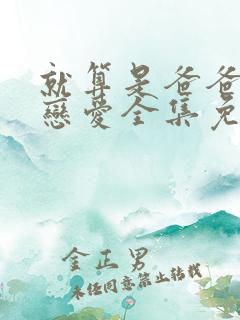 就算是爸爸
戀愛全集免
金正男
未經同意禁止轉載